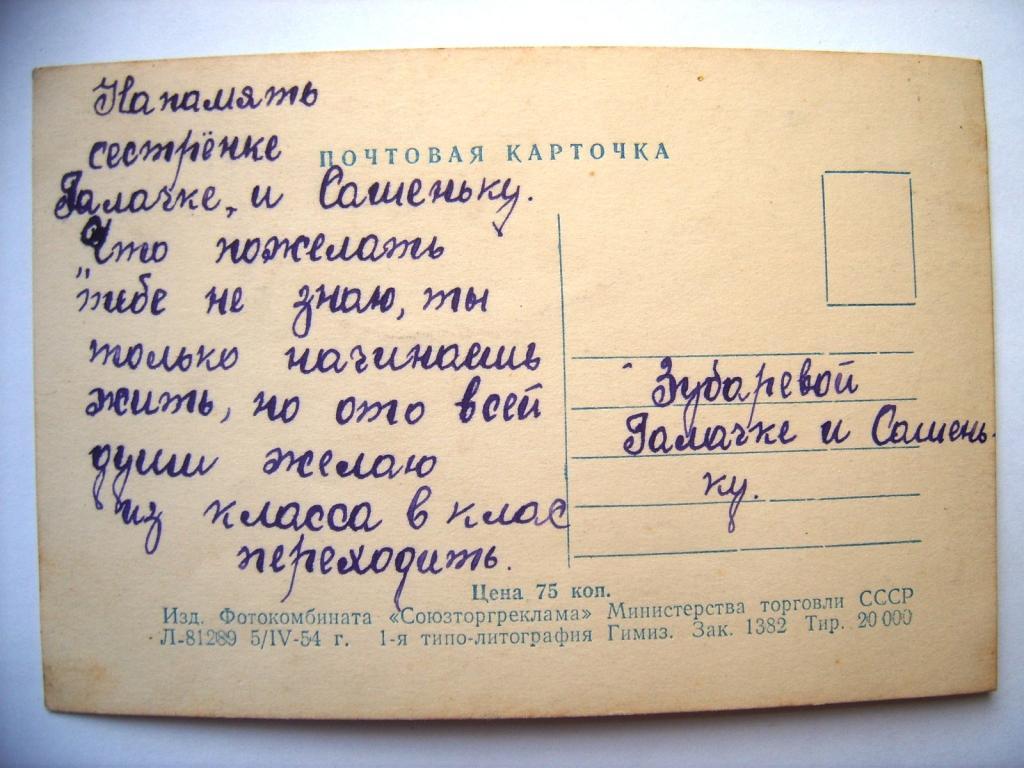 На память
сестрёнке
ПОЧТОВАЯ КАРТОЧКА
Галачке, и Сашеньку.
Что пожелать
"тебе не знаю, ты
только начинаешь
жить, но ото всей
души желаю
из класса в клас
переходить.
Зубаревой
Галачке и Сашень-
ку.
Цена 75 коп.
Изд. Фотокомбината «Союзторгреклама» Министерства торговли СССР
Л-81289 5/IV-54 г. 1-я типо-литография Гимиз. Зак. 1382 Тир. 20 000